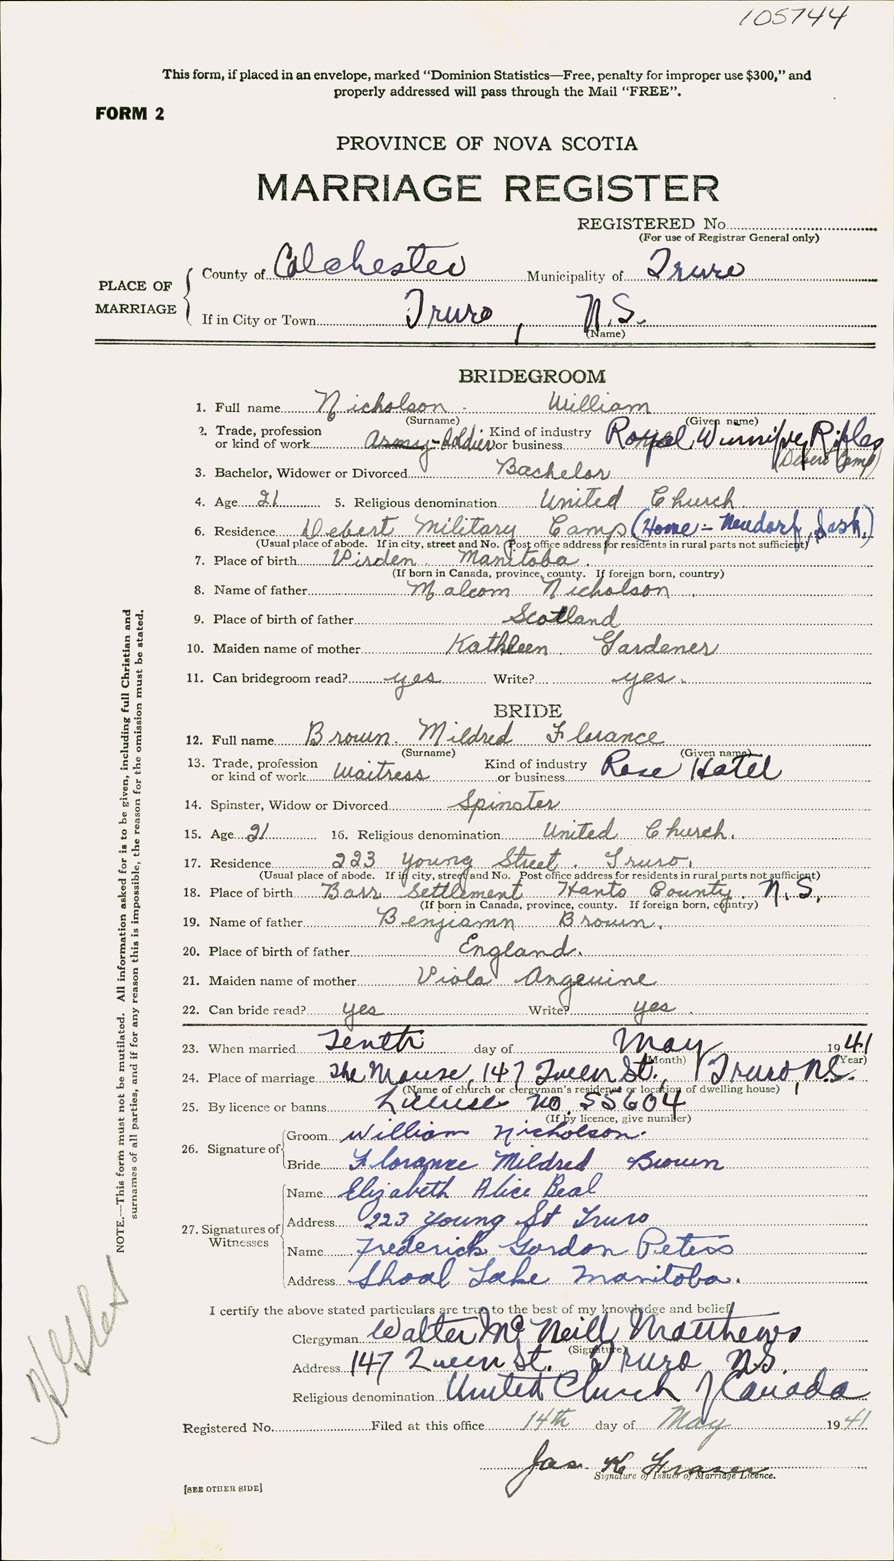 105744
This form, if placed in an envelope, marked "Dominion Statistics—Free, penalty for improper use $300," and
properly addressed will pass through the Mail "FREE".
FORM 2
PROVINCE OF NOVA SCOTIA
MARRIAGE REGISTER
REGISTERED No.
(For use of Registrar General only)
PLACE OF MARRIAGE
County of Colchester Municipality of Truro
If in City or Town Truro, N.S.
(Name)
BRIDEGROOM
1. Full name Nicholson - William
(Surname) (Given name)
2. Trade, profession or kind of work Army - Soldier Kind of industry or business Royal Winnipeg Rifles
(Debert Camp)
3. Bachelor, Widower or Divorced Bachelor
4. Age 21 5. Religious denomination United Church
6. Residence Debert Military Camp (Home:- Neudorf, Sask.)
(Usual place of abode. If in city, street and No. Post office address for residents in rural parts not sufficient)
7. Place of birth Virden Manitoba.
(If born in Canada, province, county. If foreign born, country)
8. Name of father Malcom Nicholson
9. Place of birth of father Scotland
10. Maiden name of mother Kathleen Gardener
11. Can bridegroom read? yes Write? yes.
BRIDE
12. Full name Brown. Mildred Florance
(Surname) (Given name)
13. Trade, profession or kind of work Waitress Kind of industry or business Rose Hotel
14. Spinster, Widow or Divorced Spinster
15. Age 21 16. Religious denomination United Church.
17. Residence 223 Young Street. Truro.
(Usual place of abode. If in city, street and No. Post office address for residents in rural parts not sufficient)
18. Place of birth Barr Settlement Hants County. N.S.
(If born in Canada, province, county. If foreign born, country)
19. Name of father Benjiamn Brown.
20. Place of birth of father England.
21. Maiden name of mother Viola Angevine
22. Can bride read? yes Write? yes.
23. When married Tenth day of May 1941
(Month) (Year)
24. Place of marriage The Manse, 147 Queen St., Truro, N.S.
(Name of church or clergyman's residence or location of dwelling house)
25. By licence or banns License no. 55604
(If by licence, give number)
26. Signature of
Groom William Nicholson.
Bride Florance Mildred Brown
27. Signatures of Witnesses
Name Elizabeth Alice Beal
Address 223 Young St Truro
Name Frederick Gordon Peters
Address Shoal Lake Manitoba.
I certify the above stated particulars are true to the best of my knowledge and belief
Clergyman Walter McNeill Matthews
(Signature)
Address 147 Queen St. Truro N.S.
Religious denomination United Church of Canada
Registered No. Filed at this office 14th day of May 1941
Jas. K Fraser
Signature of Issuer of Marriage Licence.
[SEE OTHER SIDE]
NOTE.—This form must not be mutilated. All information asked for is to be given, including full Christian and
surnames of all parties, and if for any reason this is impossible, the reason for the omission must be stated.